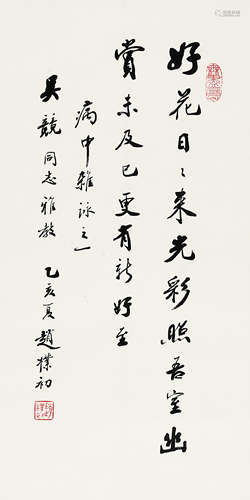 好花日〻来光彩照吾室幽
赏未及已更有新好至
病中雜詠之一
吴競同志雅教
乙亥夏趙樸初